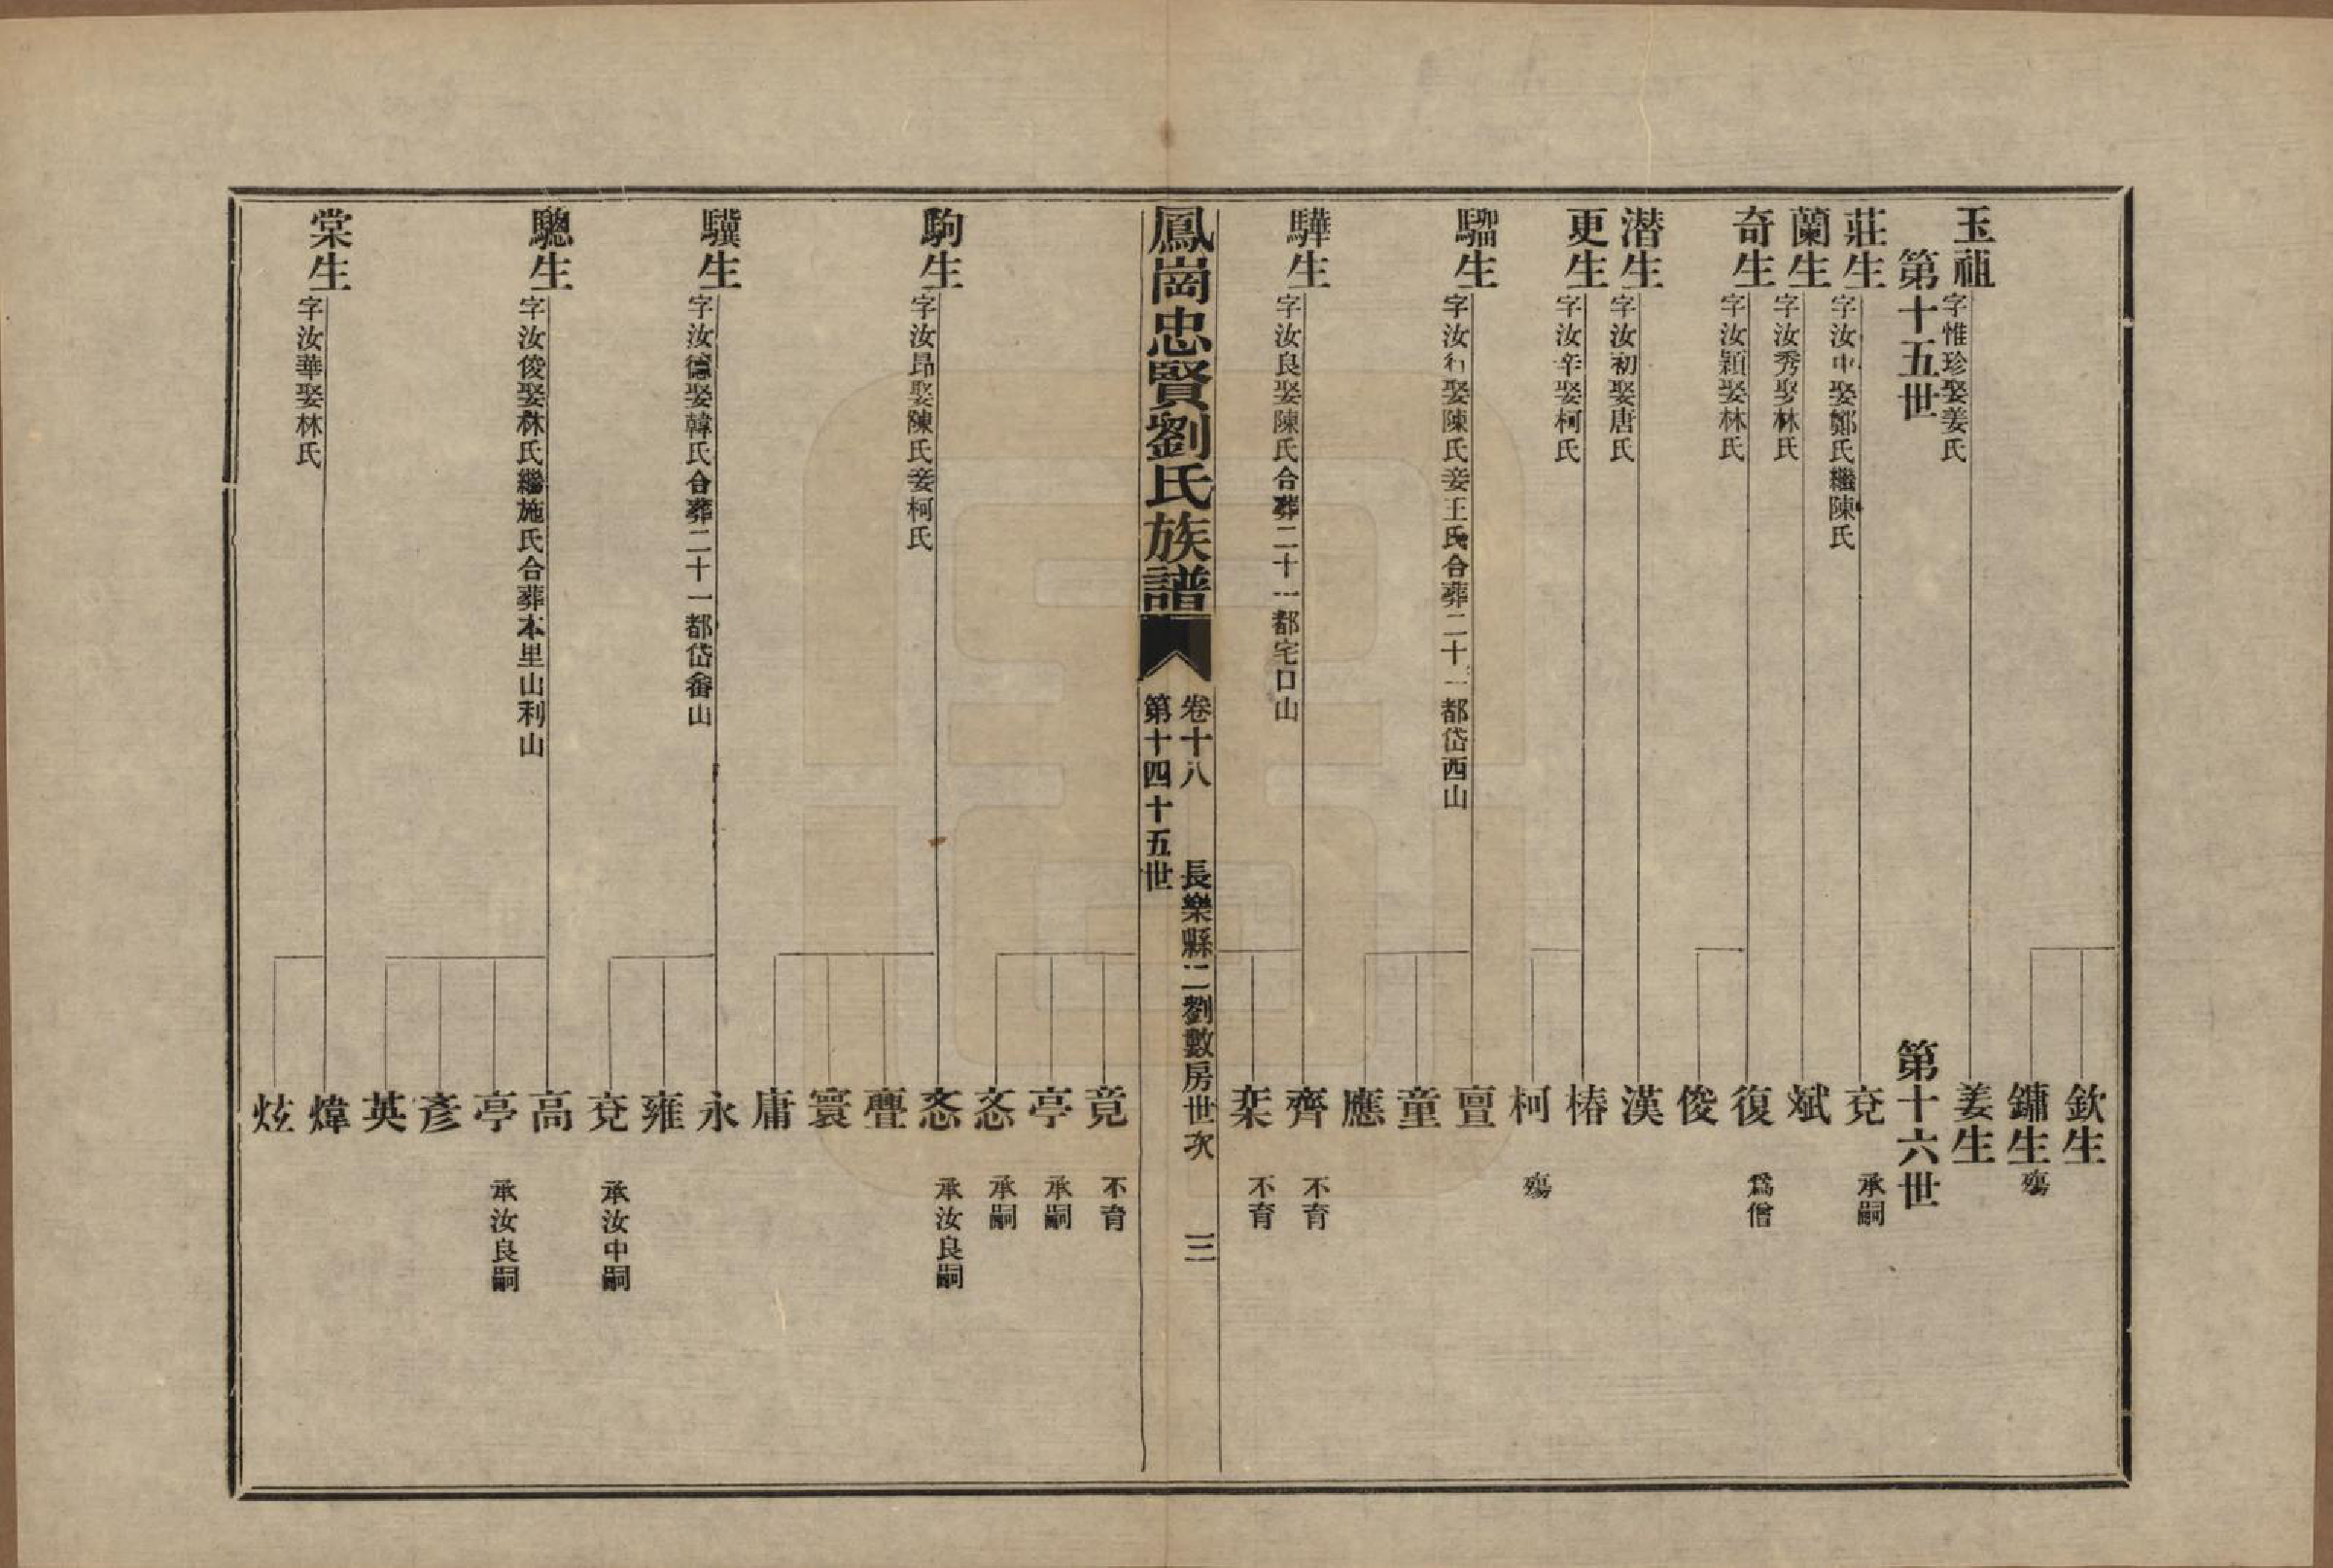 欽生
鏞生 殤
玉祖 字惟珍娶姜氏
姜生
第十五世
第十六世
莊生 字汝中娶鄭氏繼陳氏
兗 承嗣
蘭生 字汝秀娶林氏
斌
奇生 字汝穎娶林氏
復 爲僧
俊
潛生 字汝初娶唐氏
漢
更生 字汝辛娶柯氏
椿
柯 殤
騮生 字汝行娶陳氏妾王氏合葬二十一都岱西山
亶
童
應
驊生 字汝良娶陳氏合葬二十一都宅口山
齊 不育
不育
鳳崗忠賢劉氏族譜
卷十八 長樂縣二劉數房世次 三
第十四十五世
竟 不育
亭 承嗣
忞 承嗣
駒生 字汝昂娶陳氏妾柯氏
忞 承汝良嗣
亹
寰
庸
驥生 字汝德娶韓氏合葬二十一都岱畬山
永
雍
兗 承汝中嗣
驄生 字汝俊娶林氏繼施氏合葬本里山利山
高
亭 承汝良嗣
彥
英
棠生 字汝華娶林氏
煒
炫